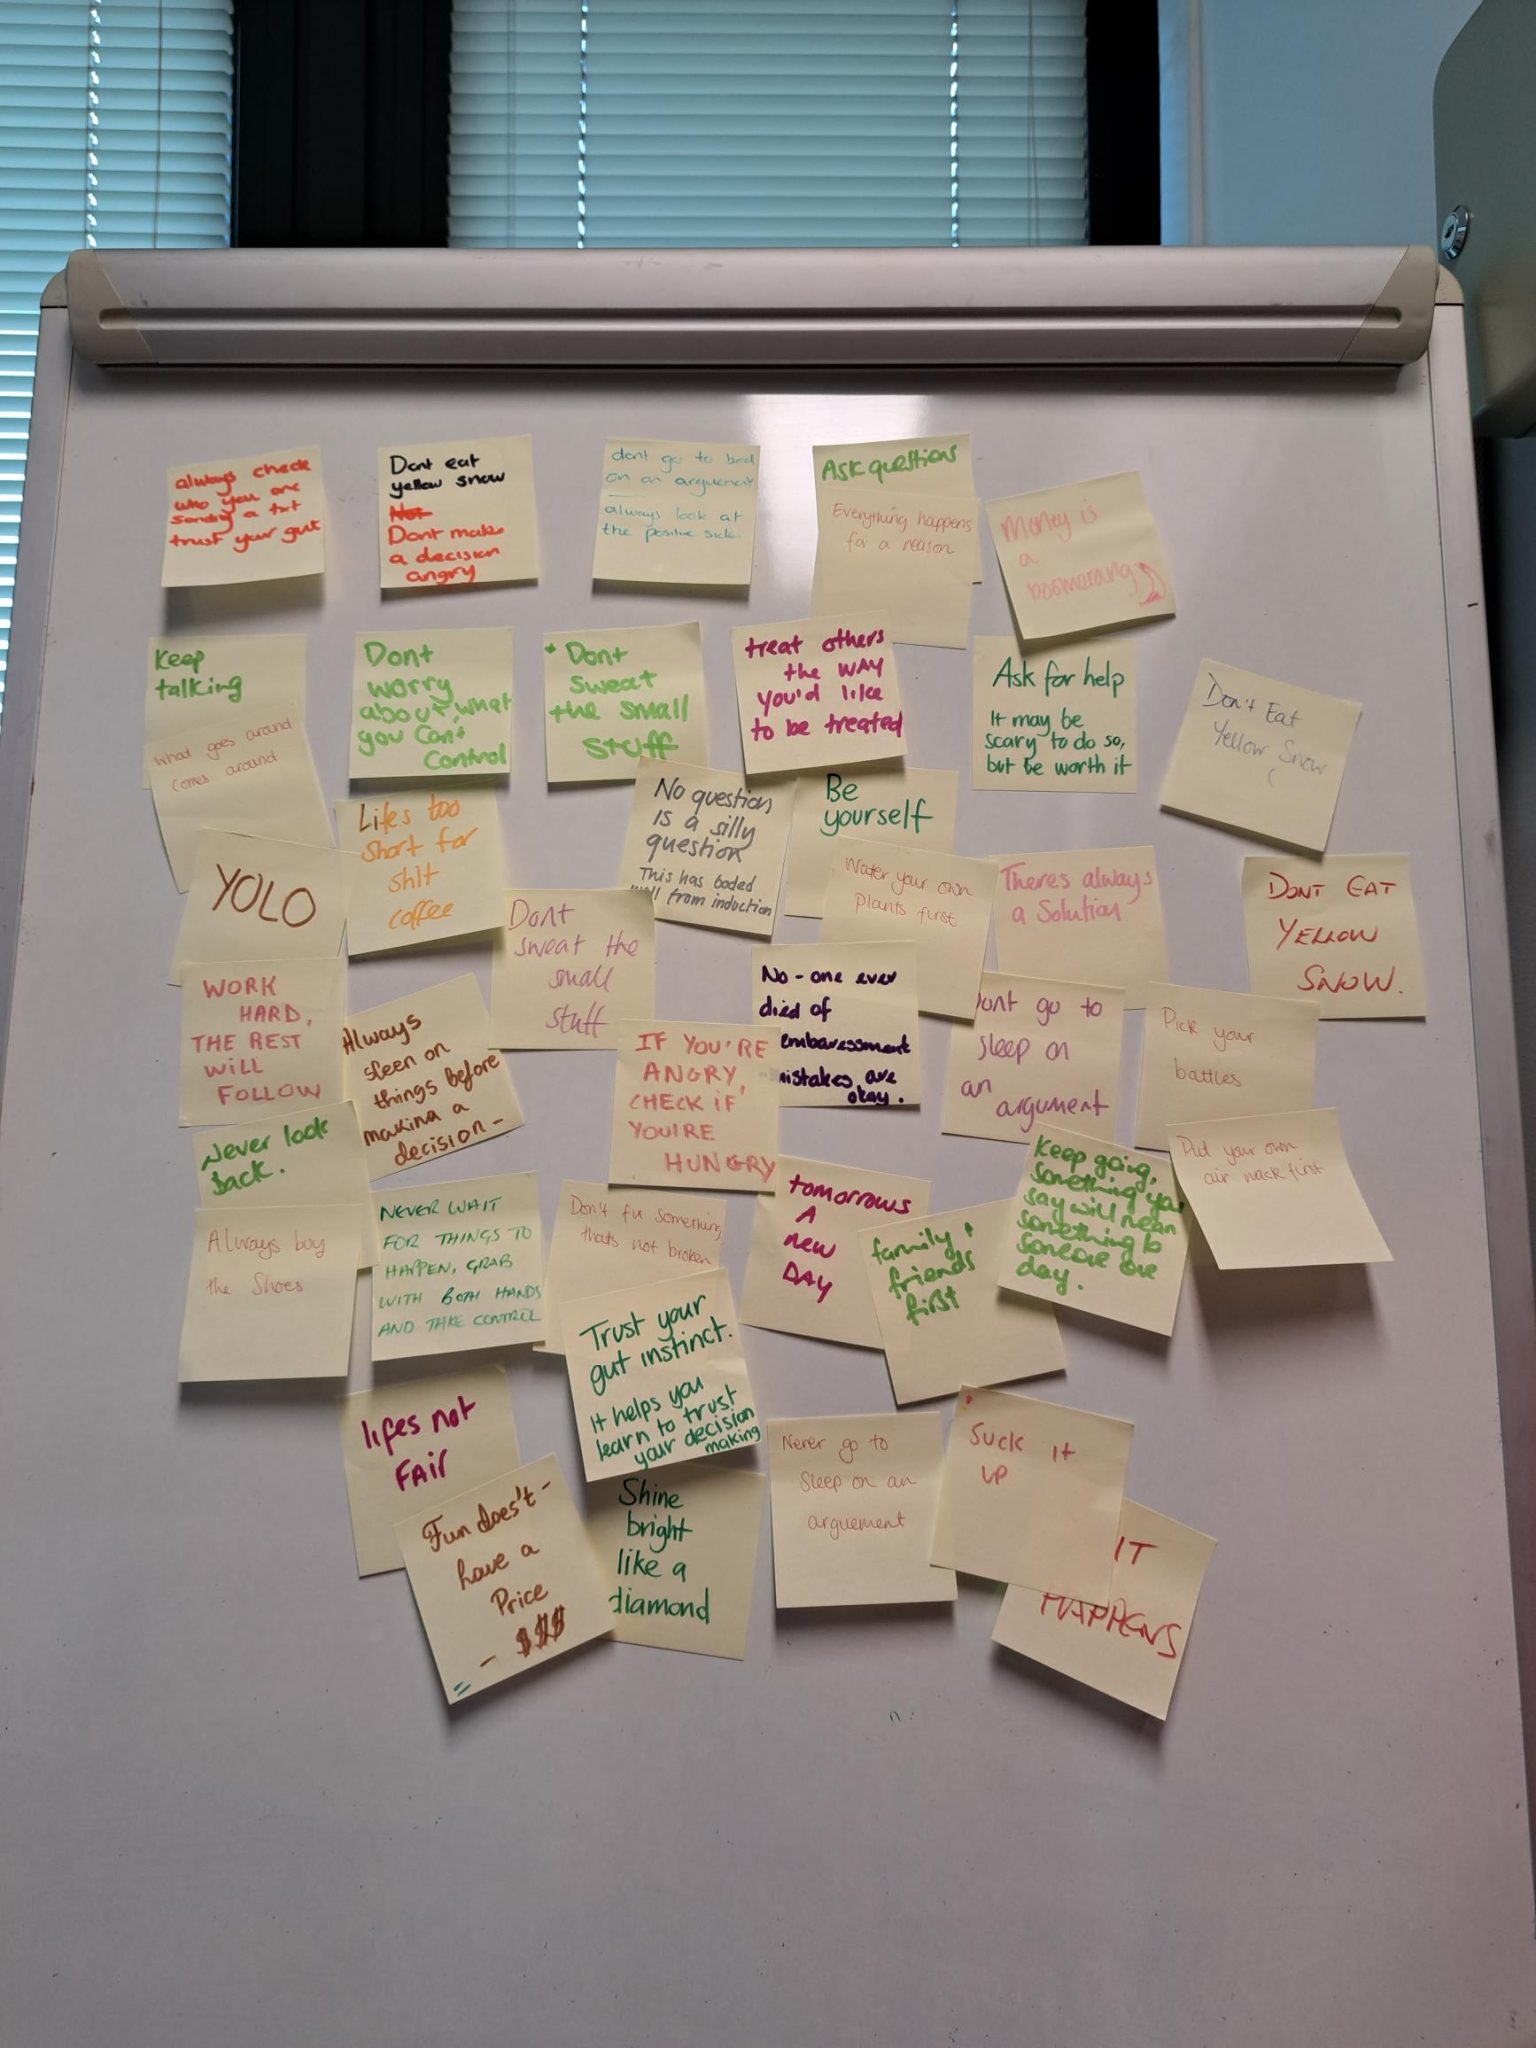 always check
who you are
sending a txt
trust your gut
Dont eat
yellow snow
Not
Dont make
a decision
angry
dont go to bed
on an arguement
always look at
the positive side
Ask questions
Everything happens
for a reason
Money is
a
boomerang
Keep
talking
What goes around
comes around
Dont
worry
about what
you Can't
Control
* Dont
sweat
the small
stuff
treat others
the WAY
you'd like
to be treated
Ask for help
It may be
scary to do so,
but be worth it
Don't Eat
Yellow Snow
YOLO
Lifes too
short for
shit
coffee
No question
is a silly
question
This has boded
well from induction
Be
yourself
Water your own
plants first
Theres always
a Solution
DONT EAT
YELLOW
SNOW.
WORK
HARD,
THE REST
WILL
FOLLOW
Always
sleen on
things before
making a
decision -
Dont
sweat the
small
stuff
IF YOU'RE
ANGRY,
CHECK IF
YOU'RE
HUNGRY
No-one ever
died of
embaressment
mistakes are
okay.
Dont go to
sleep on
an
argument
Pick your
battles
Never look
back.
Always buy
the Shoes
NEVER WAIT
FOR THINGS TO
HAPPEN, GRAB
WITH BOTH HANDS
AND TAKE CONTROL
Don't fix something
thats not broken
tomorrows
A
new
DAY
family +
friends
first
Keep going,
something you
say will mean
something to
someone one
day.
Put your own
air mack first
lifes not
FAIR
Trust your
gut instinct.
It helps you
learn to trust
your decision
making
Fun does't -
have a
Price
- $$$
Shine
bright
like a
diamond
Never go to
Sleep on an
arguement
Suck it
up
IT
HAPPENS